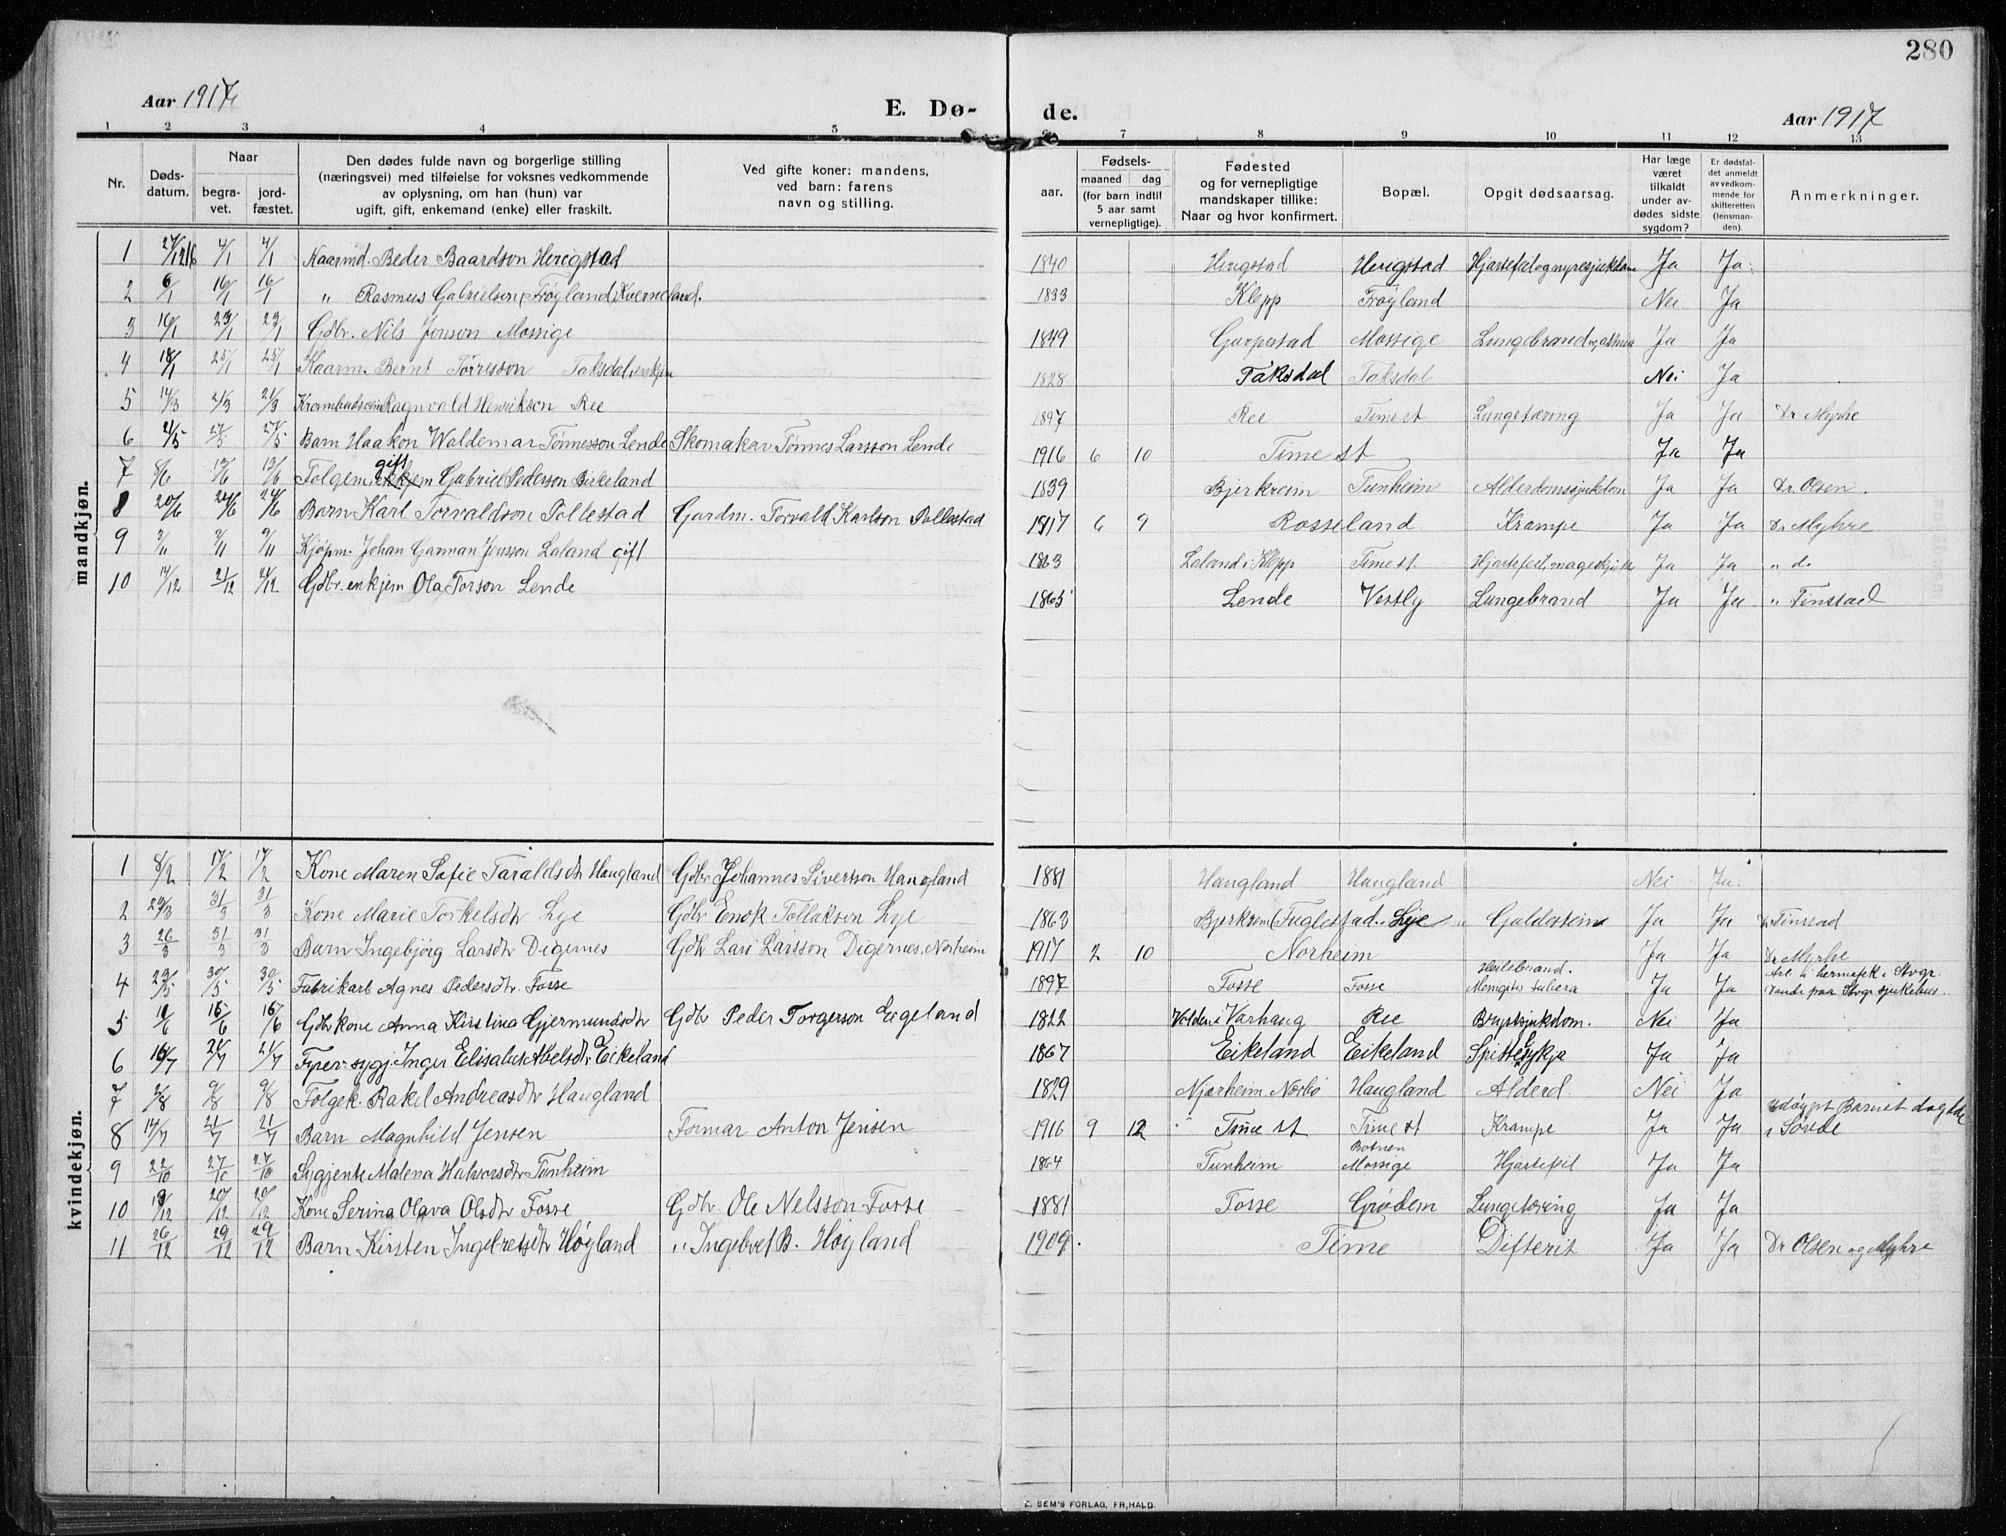 280
Aar 1917
E. Dø-
de.
Aar 1917
1 2 3 4 5 6 7 8 9 10 11 12 13
Nr.
Døds-
datum.
Naar
begra-
vet.
jord-
fæstet.
Den dødes fulde navn og borgerlige stilling
(næringsvei) med tilføielse for voksnes vedkommende
av oplysning, om han (hun) var
ugift, gift, enkemand (enke) eller fraskilt.
Ved gifte koner: mandens,
ved barn: farens
navn og stilling.
Fødsels-
aar.
maaned dag
(for barn indtil
5 aar samt
vernepligtige).
Fødested
og for vernepligtige
mandskaper tillike:
Naar og hvor konfirmert.
Bopæl.
Opgit dødsaarsag.
Har læge
været
tilkaldt
under av-
dødes sidste
sygdom?
Er dødsfal-
det anmeldt
av vedkom-
mende for
skifteretten
(lensman-
den).
Anmerkninger.
mandkjøn.
1 27/12 16 4/1 4/1 Kaarmd. Peder Baardson Herigstad 1840 Herigstad Herigstad Hjartefeil og nyresjukdom Ja Ja
2 6/1 16/1 16/1 " Rasmus Gabrielsen Frøyland, Kverneland. 1833 Klepp Frøyland Nei Ja
3 16/1 23/1 23/1 Gdbr. Nils Jonson Mossige 1849 Gurpestad Mossige Lungebrand og Ja Ja
4 18/1 25/1 25/1 Kaarm. Bernt Tørresson Taksdal, enkjem 1828 Taksdal Taksdal Nei Ja
5 14/3 21/3 21/3 Ragnvald Henrikson Ree 1897 Ree Time st Lungetæring Ja Ja Dr Myhre
6 21/5 27/5 27/5 Barn Haakon Waldemar Tønnesson Lende Skomakar Tønnes Larsson Lende 1916 6 10 Time st Ja Ja
7 8/6 13/6 13/6 Folgem. gift Gabriel Pederson Birkeland 1839 Bjerkreim Tunheim Alderdomssjukdom Ja Ja Dr. Olsen.
8 20/6 24/6 24/6 Barn Karl Torvaldson Pollestad Gardm. Torvald Karlson Pollestad 1917 6 9 Rosseland Krampe Ja Ja Dr Myhre
9 3/11 9/11 9/11 Kjøpm. Johan Garman Jonsson Laland gift 1863 Laland i Klepp Time st. Hjartefeil, Ja Ja " do
10 14/12 21/12 21/12 Gdbr. enkjem Ola Torson Lende 1865 Lende Vestly Lungebrand Ja Ja " Finstad
kvindekjøn.
1 8/2 17/2 17/2 Kone Maren Sofie Taraldsdtr Haugland Gdbr Johannes Sivertson Haugland 1881 Haugland Haugland Nei Ja
2 23/3 31/3 31/3 Kone Marie Torkelsdtr Lye Gdbr Enok Tollakson Lye 1863 Bjerkrem (Fuglestad) Lye Galdestein Ja Ja Dr Finstad
3 26/3 31/3 31/3 Barn Ingebjörg Larsdtr Digernes Gdbr Lars Larsson Digernes, Norheim 1917 2 10 Norheim Ja Ja Dr Myhre
4 23/5 30/5 30/5 Fabrikarb Agnes Pedersdtr. Fosse 1897 Fosse Fosse Ja Ja Arb i hermefek i Stvgr. Døde paa Stvgr sjukehus.
5 10/6 16/6 16/6 Gdbrkone Anna Kirstina Gjermundsdtr Gdbr Peder Torgerson Eigeland 1822 Varhaug Ree Brystsjukdom. Nei Ja
6 16/7 21/7 21/7 Inger Elisabet Abelsdtr Eikeland 1867 Eikeland Eikeland Ja Ja
7 2/8 9/8 9/8 Folgek. Rakel Andreasdtr Haugland 1829 Njærheim Nærbø Haugland Alderd. Nei Ja
8 14/7 21/7 21/7 Barn Magnhild Jensen Formar Anton Jensen 1916 9 12 Time st Time st Krampe Ja Ja Udøypt Barnet
9 22/10 27/10 27/10 Sygjente Malena Halvorsdtr Tunheim 1864 Tunheim Mossige Hjartefeil Ja Ja
10 13/12 20/12 20/12 Kone Serina Olava Olsdtr Fosse Gdbr. Ole Nelsson Fosse 1881 Fosse Grødem Lungetæring Ja Ja
11 26/12 29/12 29/12 Barn Kirsten Ingebretsdtr Høyland " Ingebret B. Høyland 1909. Time Difterit Ja Ja Dr Olsen og Myhre
E. SEM'S FORLAG, FR.HALD.